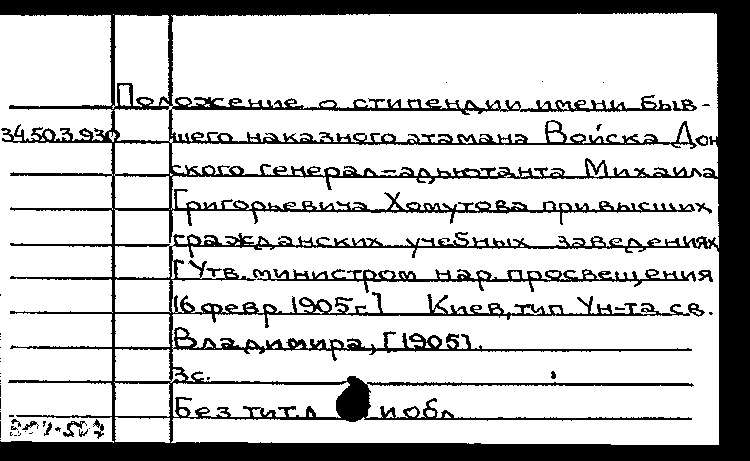 Положение о стипендии имени быв-
34.50.3.930 шего наказного атамана Войска Дон
ского генерал-адъютанта Михаила
Григорьевича Хомутова при высших
гражданских учебных заведениях
[Утв. министром нар. просвещения
16 февр. 1905г.] Киев, тип. Ун-та св.
Владимира, [1905].
3с.
Без тит.л и обл